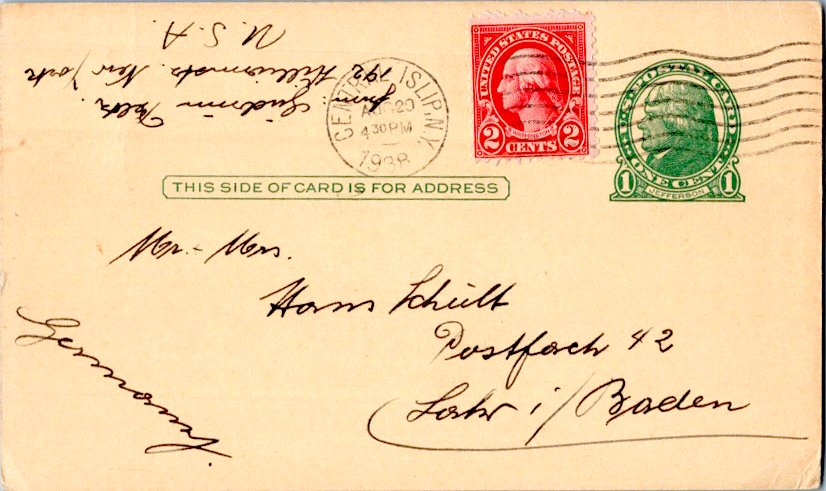 U.S.A.
192 New York
from
CENTRAL ISLIP, N.Y.
20
4 30 PM
1938
UNITED STATES POSTAGE
WASHINGTON
2 CENTS 2
U.S. POSTAL CARD
1 ONE CENT 1
JEFFERSON
THIS SIDE OF CARD IS FOR ADDRESS
Mr. - Mrs.
Hans Schült
Postfach 42
Lahr i/Baden
Germany.